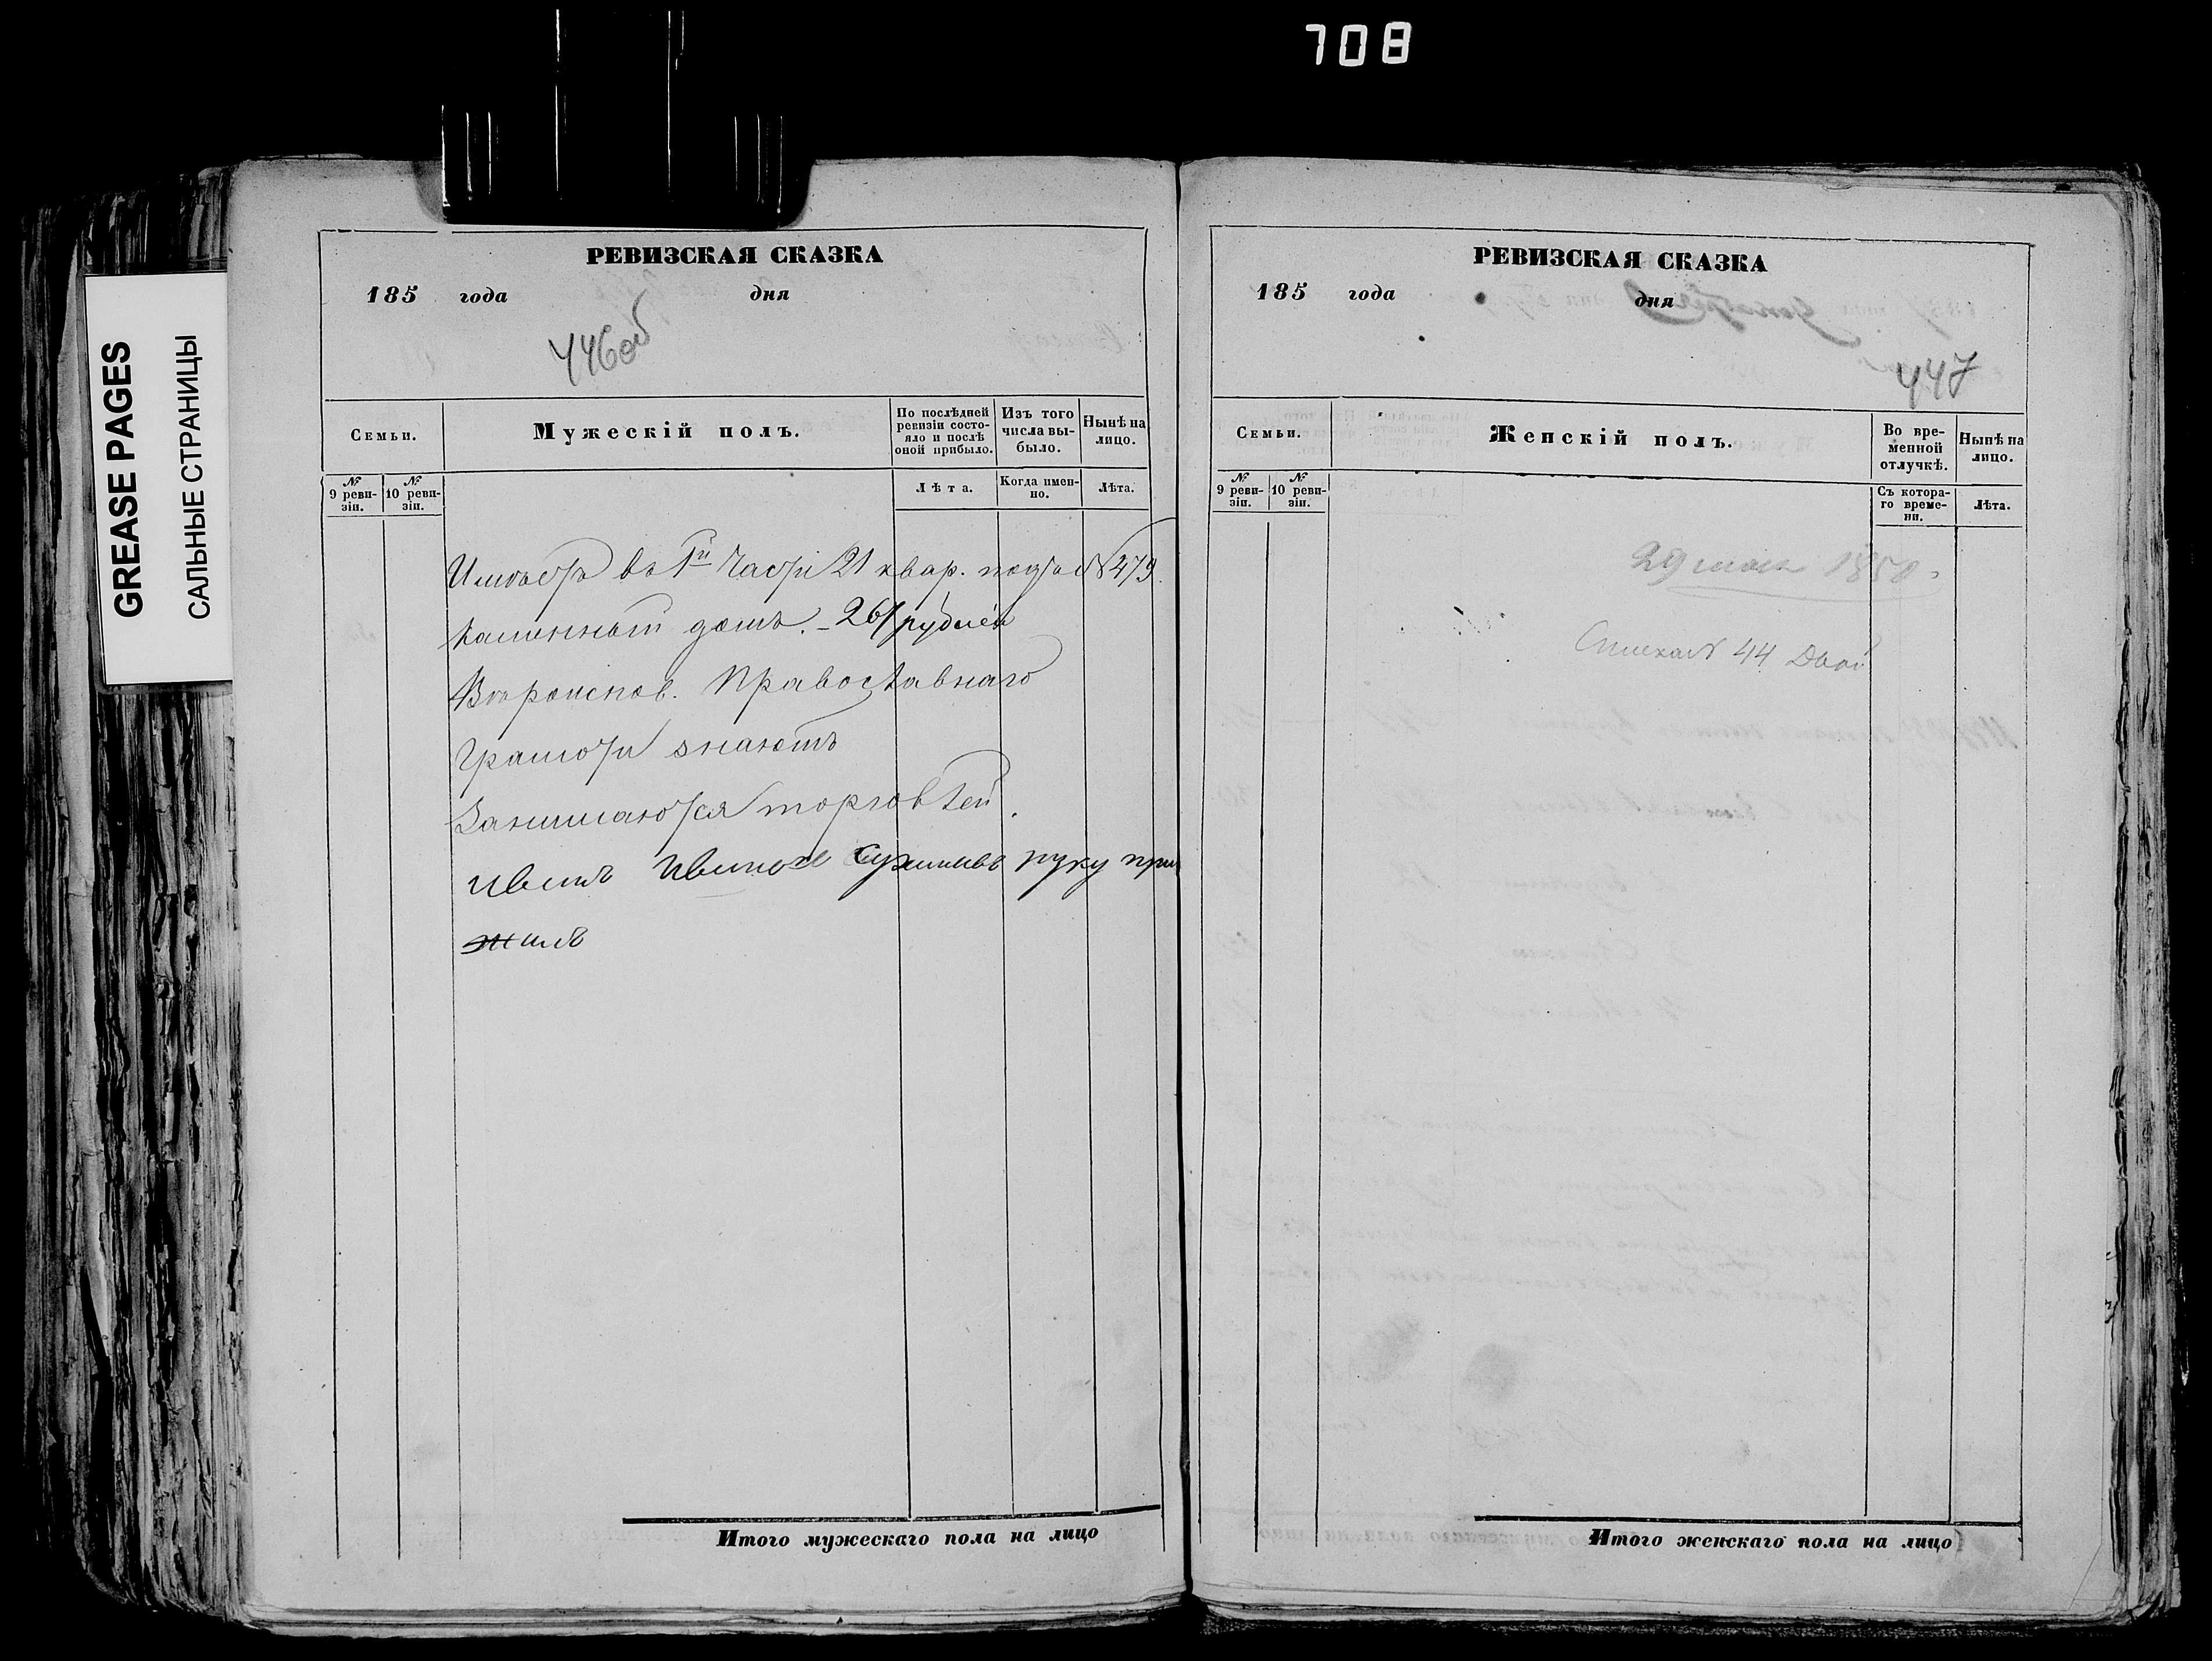 708
GREASE PAGES
САЛЬНЫЕ СТРАНИЦЫ
РЕВИЗСКАЯ СКАЗКА
185 года дня
446об
Семьи.
Мужескій полъ.
По послѣдней ревизіи состояло и послѣ оной прибыло.
Изъ того числа выбыло.
Нынѣ на лицо.
№ 9 ревизіи.
№ 10 ревизіи.
Лѣта.
Когда именно.
Лѣта.
Имѣетъ въ 1й Части 21 квар. подъ № 479.
каменный домъ. - 261 рублей
Вѣроиспов. Православнаго
Грамоти знаютъ
Занимаются торговлей.
руку при
жилъ
Итого мужескаго пола на лицо
РЕВИЗСКАЯ СКАЗКА
185 года дня
447
Семьи.
Женскій полъ.
Во временной отлучкѣ.
Нынѣ на лицо.
№ 9 ревизіи.
№ 10 ревизіи.
Съ котораго времени.
Лѣта.
29 мая 1850.
44
Итого женскаго пола на лицо